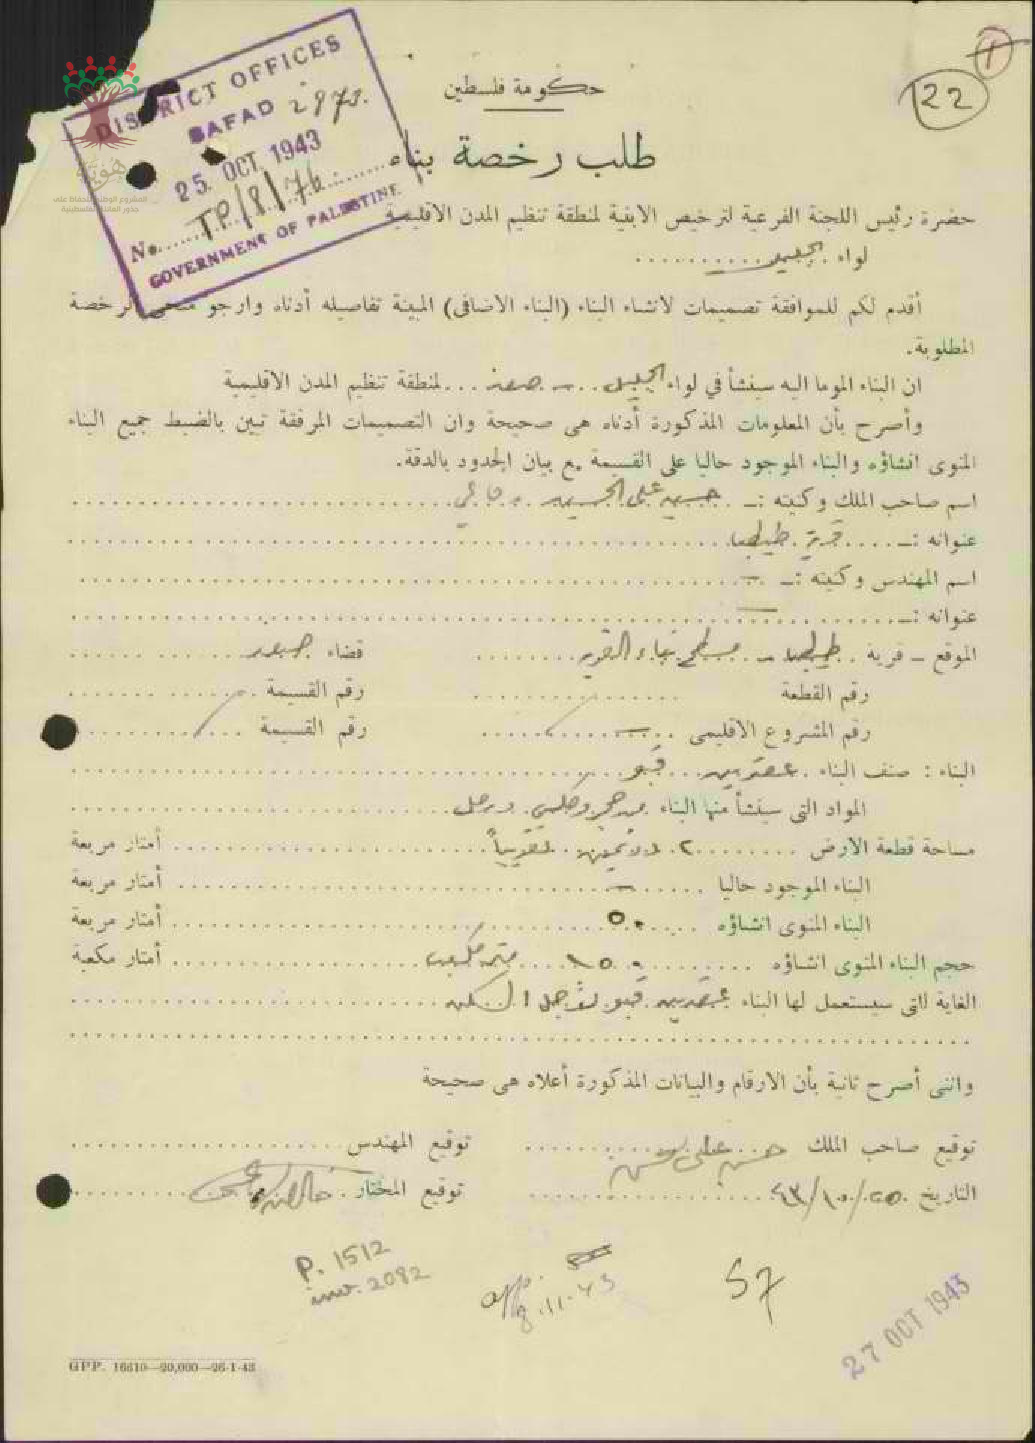 1
22
DISTRICT OFFICES
SAFAD 2973.
25. OCT. 1943
No. TP/8/76
GOVERNMENT OF PALESTINE
هُويّة
المشروع الوطني للحفاظ على
جذور العائلة الفلسطينية
حكومة فلسطين
طلب رخصة بناء
حضرة رئيس اللجنة الفرعية لترخيص الابنية لمنطقة تنظيم المدن الاقليمية
لواء الجليل
أقدم لكم للموافقة تصميمات لانشاء البناء (البناء الاضافى) المبينة تفاصيله أدناه وارجو منحى الرخصة
المطلوبة.
ان البناء الموما اليه سينشأ في لواء الجليل – صفد لمنطقة تنظيم المدن الاقليمية
وأصرح بأن المعلومات المذكورة أدناه هى صحيحة وان التصميمات المرفقة تبين بالضبط جميع البناء
المنوى انشاؤه والبناء الموجود حاليا على القسيمة مع بيان الحدود بالدقة.
اسم صاحب الملك وكنيته :– حسن علي الحسين
عنوانه :– قرية طيطبا
اسم المهندس وكنيته :– –
عنوانه :– –
الموقع – قرية طيطبا – مسطح بناء القرية قضاء صفد
رقم القطعة رقم القسيمة
رقم المشروع الاقليمى – رقم القسيمة
البناء : صنف البناء عقدين قبو
المواد التى سينشأ منها البناء من حجر وكلس ورمل
مساحة قطعة الارض ٢ دونمين تقريباً أمتار مربعة
البناء الموجود حاليا – أمتار مربعة
البناء المنوى انشاؤه ٥٠ أمتار مربعة
حجم البناء المنوى انشاؤه ١٥٠ متر مكعب أمتار مكعبة
الغاية التى سيستعمل لها البناء عقدين قبو لأجل السكن
واننى أصرح ثانية بأن الارقام والبيانات المذكورة أعلاه هى صحيحة
توقيع صاحب الملك حسن علي حسن توقيع المهندس
التاريخ ٢٥/١٠/٤٣ توقيع المختار
P. 1512
inv. 2082
app.
8.11.43
57
27 OCT 1943
GPP. 16610—20,000—26-1-43